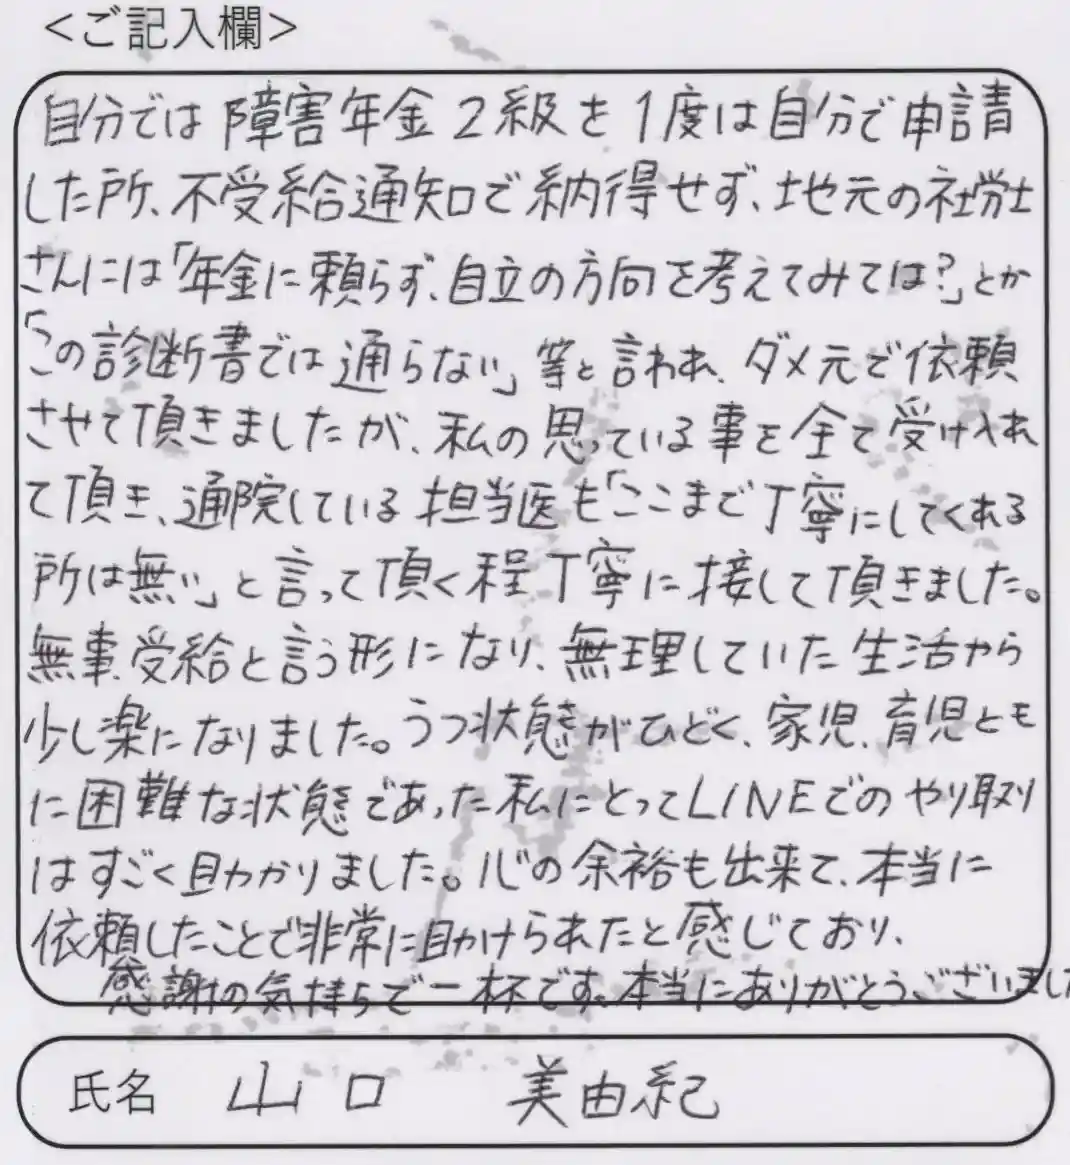 <ご記入欄>
自分では障害年金2級を1度は自分で申請
した所、不受給通知で納得せず、地元の社労士
さんには「年金に頼らず、自立の方向を考えてみては?」とか
「この診断書では通らない」等と言われ、ダメ元で依頼
させて頂きましたが、私の思っている事を全て受け入れ
て頂き、通院している担当医も「ここまで丁寧にしてくれる
所は無い」と言って頂く程丁寧に接して頂きました。
無事、受給と言う形になり、無理していた生活から
少し楽になりました。うつ状態がひどく、家児、育児とも
に困難な状態であった私にとってLINEでのやり取り
はすごく助かりました。心の余裕も出来て、本当に
依頼したことで非常に助けられたと感じており、
感謝の気持ちで一杯です。本当にありがとうございました
氏名 山口 美由紀